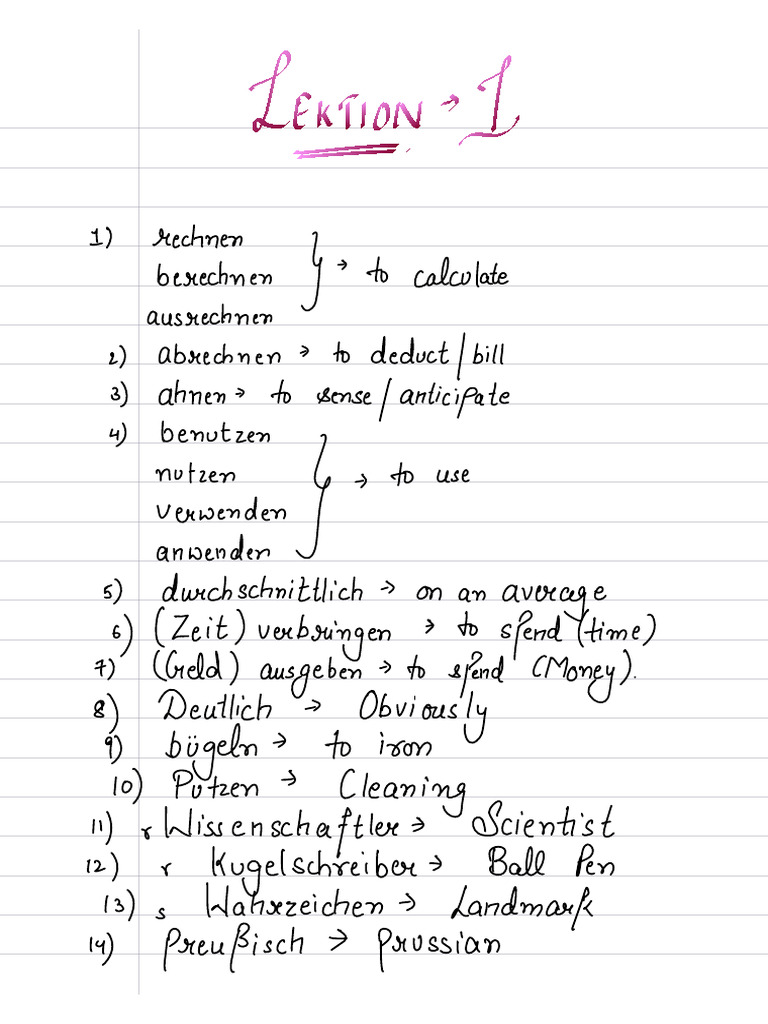 LEKTION → 1
1) rechnen
berechnen → to calculate
ausrechnen
2) abrechnen → to deduct/bill
3) ahnen → to sense/anticipate
4) benutzen
nutzen → to use
verwenden
anwenden
5) durchschnittlich → on an average
6) (Zeit) verbringen → to spend (time)
7) (Geld) ausgeben → to spend (Money).
8) Deutlich → Obviously
9) bügeln → to iron
10) Putzen → Cleaning
11) r Wissenschaftler → Scientist
12) r Kugelschreiber → Ball Pen
13) s Wahrzeichen → Landmark
14) Preußisch → Prussian